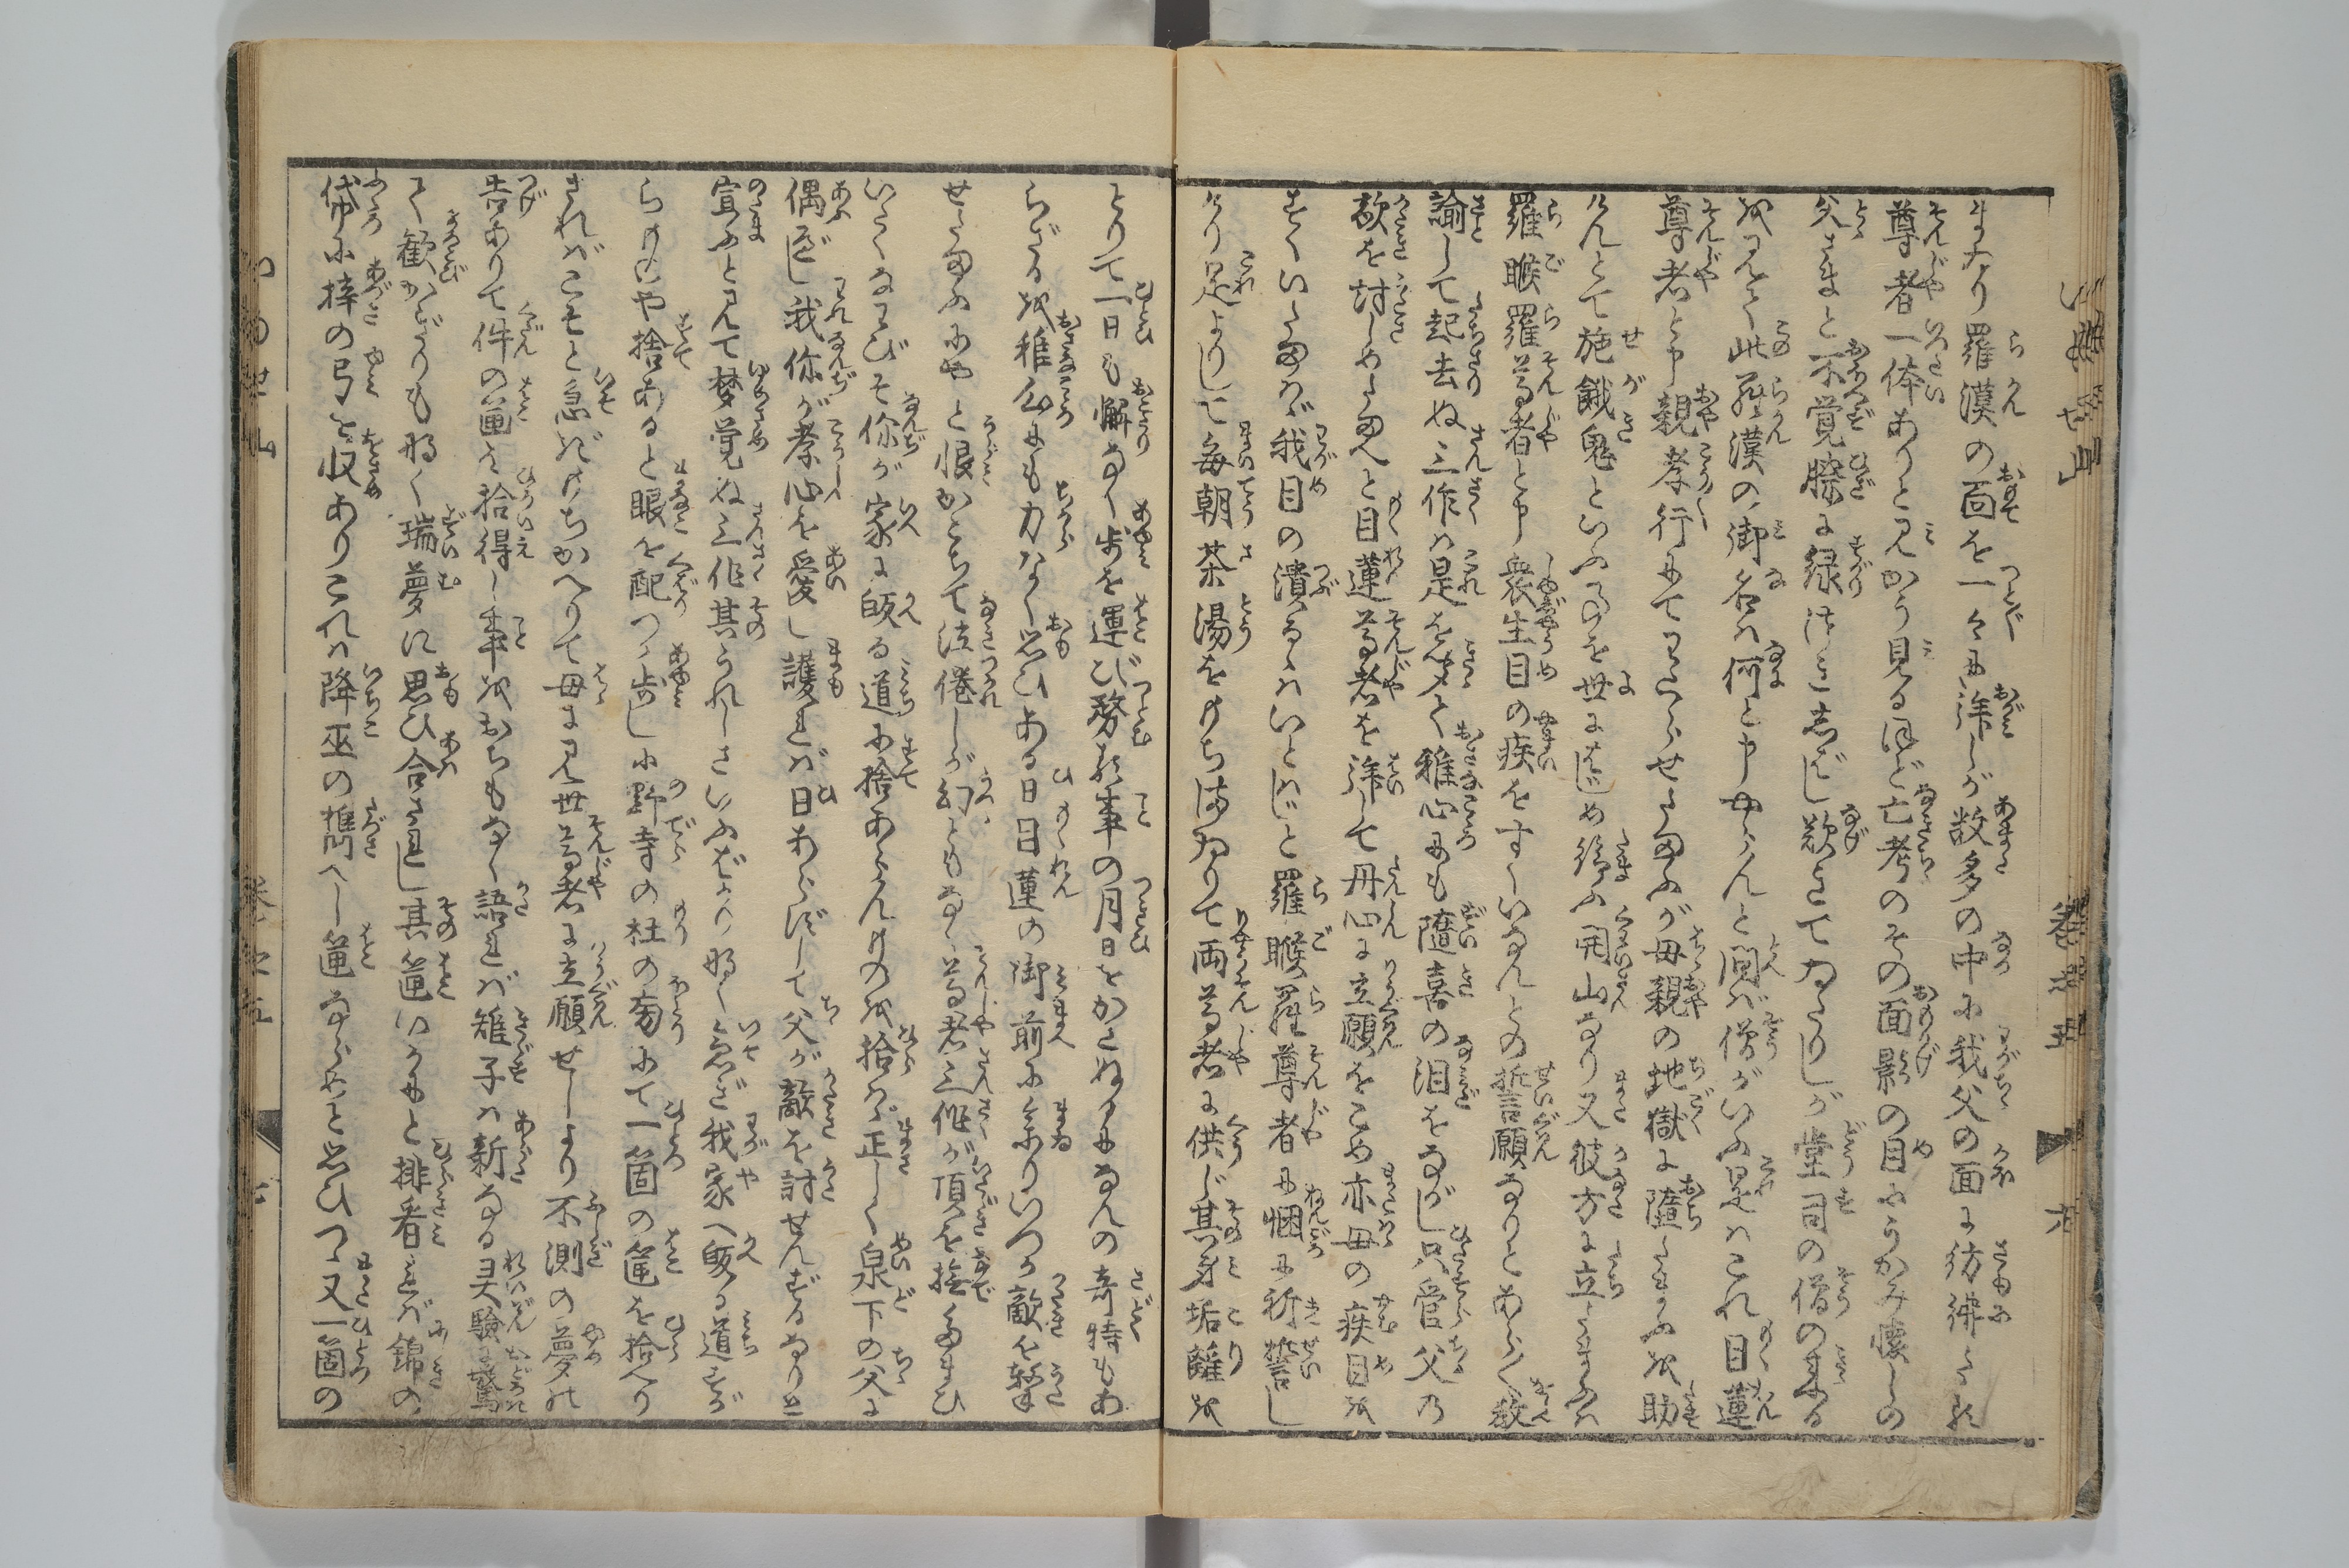 まなり羅漢の面を一々に誶しが数多の中に我父の面に彷彿たる
尊者一体ありと見かう見るほど亡考のその面影の目にうかみ懐しの
父さまと不覚膝に縁けみしばし歎きてゐたりしが堂司の僧の来る
を見て此羅漢の御名は何と申やらんと問ば僧がいふ是はこれ目蓮
尊者と申親孝行にてわたらせたまふが母親の地獄に堕たまふを助
けんとて施餓鬼といふ事を世にはじめ給ふ開山なり又彼方に立たまふは
羅睺羅尊者と申衆生目の疾をすくいなんとの誓願なりとあらく教
諭して起去ぬ三作は是を聞て稚心にも随喜の泪をながし只管父の
敵を討しめたまへと目蓮尊者を拝して丹心に立願をこめ亦母の疾目を
すくいたまはゞ我目の潰るゝはいとはじと羅睺羅尊者に悃に祈誓し
けり是よりして毎朝茶湯をもち詣ゐりて両尊者に供じ其身垢離を
とりて一日も懈なく歩を運び務る事の月日をかさぬるになんの奇特もあ
らざるを稚心にも力なく思ひある日目蓮の御前に参りいつか敵を撃
せたまふにやと恨かこちて泣倦しが幻ともなく尊者三作が頂を撫たまひ
いたくなわびそ你が家に皈る道に捨あらんものを拾はゞ正しく泉下の父に
偶べし我你が孝心を愛し護れば日あらずして父が敵を討せんずるなりと
宣ふと見て夢覚ぬ三作其うれしさいふばかり那く急ぎ我家へ皈る道すが
らものや捨あると眼を配つゝ歩しに野寺の杜の匇にて一箇の筐を拾へり
さればこそと急ぎもちかへりて母に見世尊者に立願せしより不測の夢の
告ありて件の筐を拾得し事をおちもなく語れば雉子は新なる灵験に驚
く歓かぎりも那く瑞夢に思ひ合されし其筐いかにと排看れば錦の
帒に梓の弓を収ありこれは降巫の携へし筐ならめと思ひつゝ又一箇の